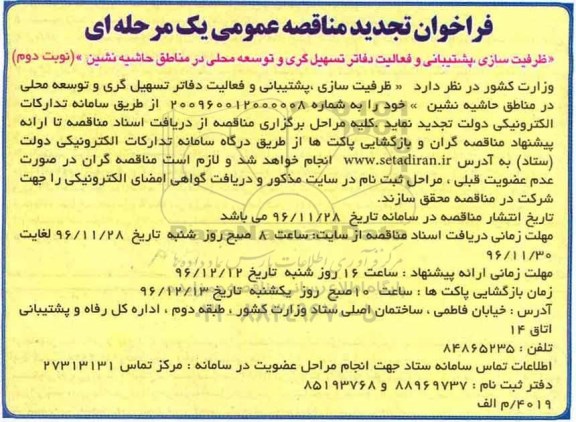 فراخوان تجدید مناقصه عمومی یک مرحله ای
«ظرفیت سازی ،پشتیبانی و فعالیت دفاتر تسهیل گری و توسعه محلی در مناطق حاشیه نشین »(نوبت دوم)
وزارت کشور در نظر دارد « ظرفیت سازی ،پشتیبانی و فعالیت دفاتر تسهیل گری و توسعه محلی
در مناطق حاشیه نشین » خود را به شماره ۲۰۰۹۶۰۰۱۲۰۰۰۰۰۸ از طریق سامانه تدارکات
الکترونیکی دولت تجدید نماید .کلیه مراحل برگزاری مناقصه از دریافت اسناد مناقصه تا ارائه
پیشنهاد مناقصه گران و بازگشایی پاکت ها از طریق درگاه سامانه تدارکات الکترونیکی دولت
(ستاد) به آدرس www.setadiran.ir انجام خواهد شد و لازم است مناقصه گران در صورت
عدم عضویت قبلی ، مراحل ثبت نام در سایت مذکور و دریافت گواهی امضای الکترونیکی را جهت
شرکت در مناقصه محقق سازند.
تاریخ انتشار مناقصه در سامانه تاریخ ۹۶/۱۱/۲۸ می باشد
مهلت زمانی دریافت اسناد مناقصه از سایت: ساعت ۸ صبح روز شنبه تاریخ ۹۶/۱۱/۲۸ لغایت
۹۶/۱۱/۳۰
مهلت زمانی ارائه پیشنهاد : ساعت ۱۶ روز شنبه تاریخ ۹۶/۱۲/۱۲
زمان بازگشایی پاکت ها : ساعت ۱۰صبح روز یکشنبه تاریخ ۹۶/۱۲/۱۳
آدرس : خیابان فاطمی ، ساختمان اصلی ستاد وزارت کشور ، طبقه دوم ، اداره کل رفاه و پشتیبانی
اتاق ۱۴
تلفن : ۸۴۸۶۵۲۳۵
اطلاعات تماس سامانه ستاد جهت انجام مراحل عضویت در سامانه : مرکز تماس ۲۷۳۱۳۱۳۱
دفتر ثبت نام : ۸۸۹۶۹۷۳۷ و ۸۵۱۹۳۷۶۸
۴۰۱۹/م الف